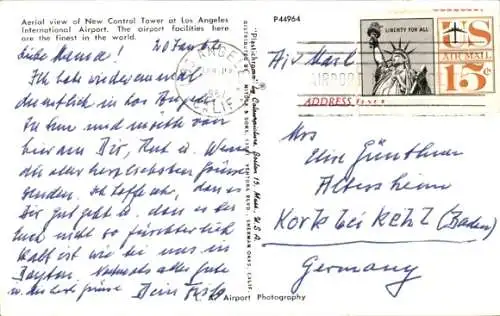 Aerial view of New Control Tower at Los Angeles
International Airport. The airport facilities here
are the finest in the world.
P44964
Liebe
20 Jan 62
Ich habe wieder einmal
dienstlich in Los Angeles
zu tun und möchte von
hier aus Dir, Kurt u.
die aller herzlichsten Grüsse
senden. Ich hoffe, dass es
Dir gut geht u. dass es bei
Euch nicht so fürchterlich
kalt ist wie bei uns in
Dayton. Nochmals alles Gute
u. herzl. Grüsse Dein
Airport Photography
"Plastichrome" by Colourpicture, Boston 15, Mass., U.S.A.
DISTRIBUTED BY MITOCK & SONS, VENTURA BLVD., SHERMAN OAKS, CALIF.
LOS ANGELES
CALIF
AIRPORT
ADDRESS
LIBERTY FOR ALL
US
AIR MAIL
15¢
Air Mail
Mrs
Else Günthner
Altersheim
Kork bei Kehl (Baden)
Germany